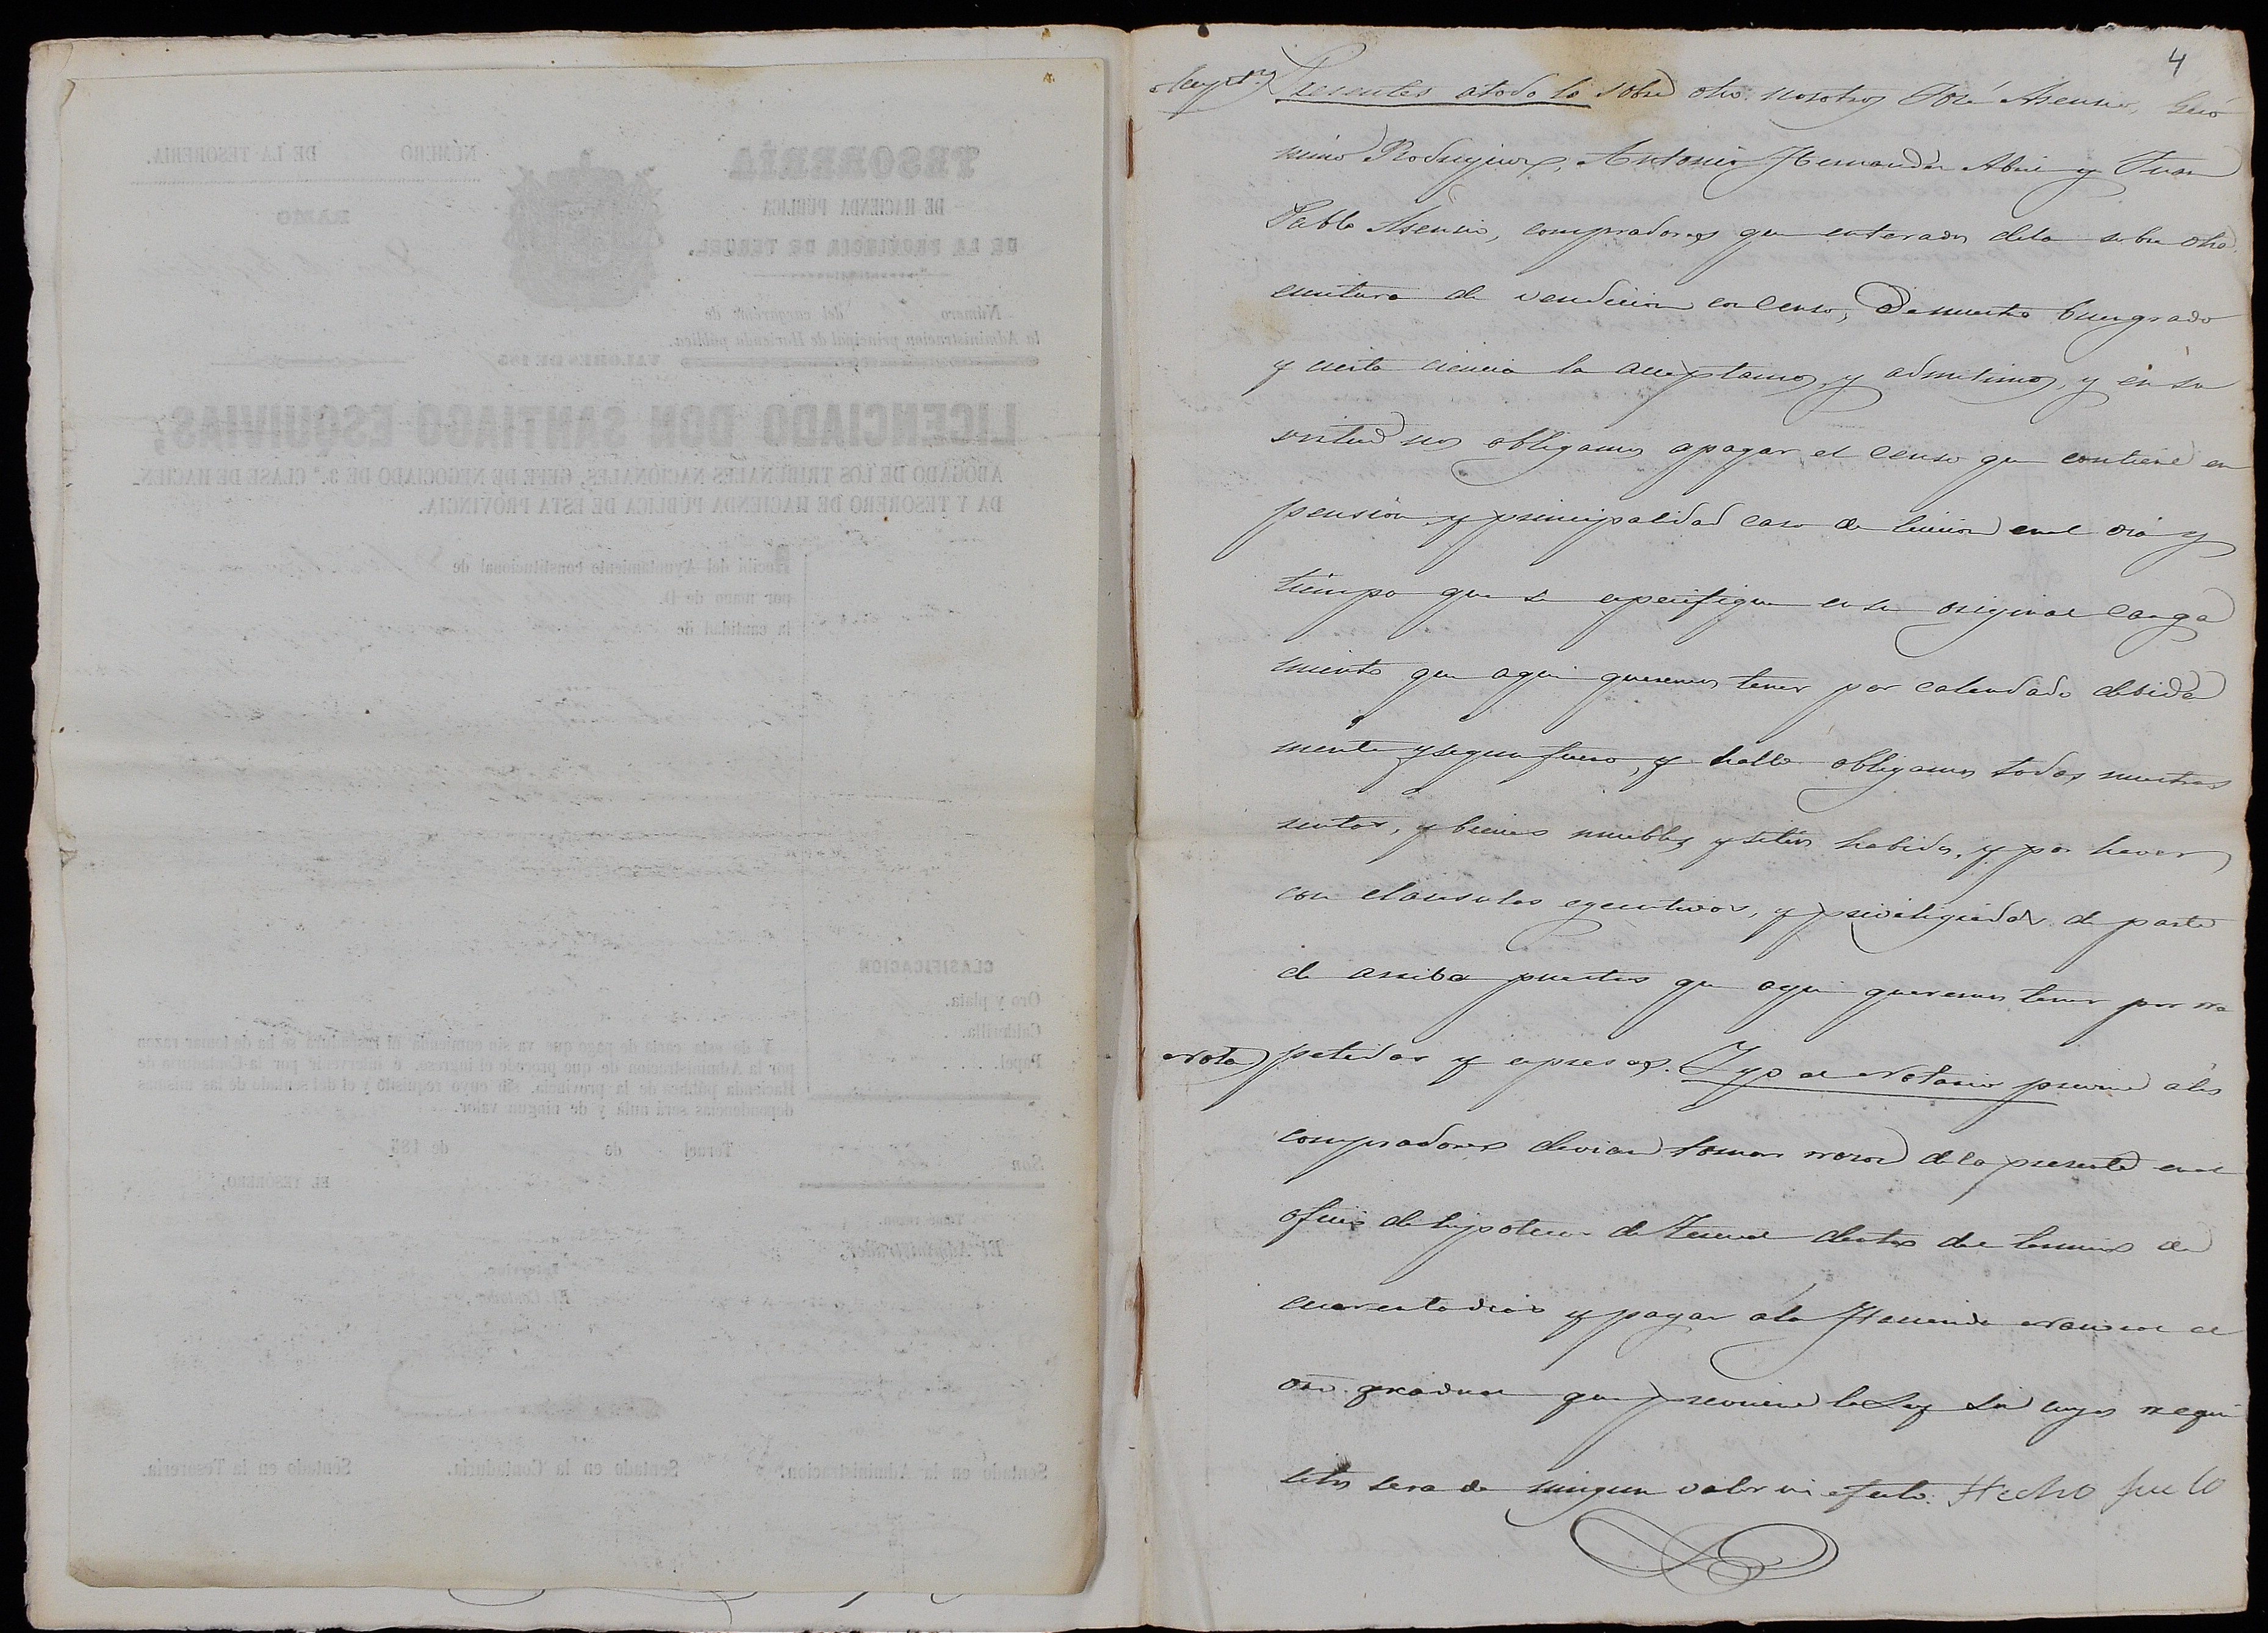 NÚMERO DE LA TESORERIA.
TESORERÍA
DE HACIENDA PÚBLICA
DE LA PROVINCIA DE TERUEL.
RAMO
Número del cargaréme de
la Administracion principal de Hacienda pública.
VALORES DE 185
LICENCIADO DON SANTIAGO ESQUIVIAS,
ABOGADO DE LOS TRIBUNALES NACIONALES, GEFE DE NEGOCIADO DE 3.ª CLASE DE HACIEN-
DA Y TESORERO DE HACIENDA PÚBLICA DE ESTA PROVINCIA.
Recibí del Ayuntamiento constitucional de
por mano de D.
la cantidad de
CLASIFICACION
Oro y plata.
Calderilla.
Papel.
Y de esta carta de pago que va sin enmienda ni se ha de tomar razon
por la Administracion de que procede el ingreso, é intervenir por la Contaduría de
Hacienda pública de la provincia, sin cuyo requisito y el del sentado de las mismas
dependencias será nula y de ningun valor.
Teruel de de 185
Son
EL TESORERO,
El Administrador,
El Contador,
Sentado en la Administracion. Sentado en la Contaduría. Sentado en la Tesorería.
4
Presentes atodo lo sobre dho. nosotros José Asensio, Geró
nimo Rodriguez, Antonio Hernandez Abril y Juan
Pablo Asensio, compradores que enterados dela sobre dha
escritura de vendicion con censo, De nuestro buen grado
y cierta ciencia la acceptamos, y admitimos, y en su
virtud nos obligamos apagar el censo que contiene en
pension y principalidad caso de luicion enel dia y
tiempo que se especifique en su original carga
miento que aqui queremos tener por calendado debida
mente y segun fuero, y hallo obligamos todos nuestras
rentas, y bienes muebles y sitios habidos, y por haver
con clausulas egecutivas, y privilegiadas de parte
de arriba puestas que aqui queremos tener por re
Nota) petidas y expresas. Y yo el Notario previne alos
compradores devian tomar razon dela presente en el
oficio de hipotecas de Teruel dentro del termino de
cuarenta dias y pagar ala Hacienda Nacional el
dro. gradual que previene la Ley sin cuyos requi
sitos sera de ningun valor ni efecto. Hecho fue lo